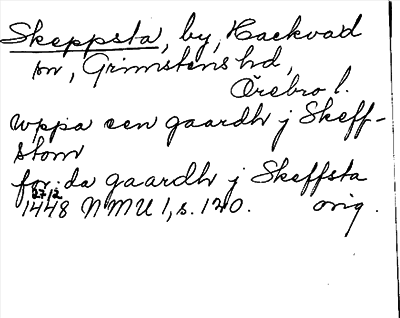 Skeppsta, by, Hackvad
sn, Grimstens hd,
Örebro l.
vppa een gaardh j Skeff-
stom
for:da gaardh j Skeffsta
27/12
1448 NMU 1, s. 120. orig.